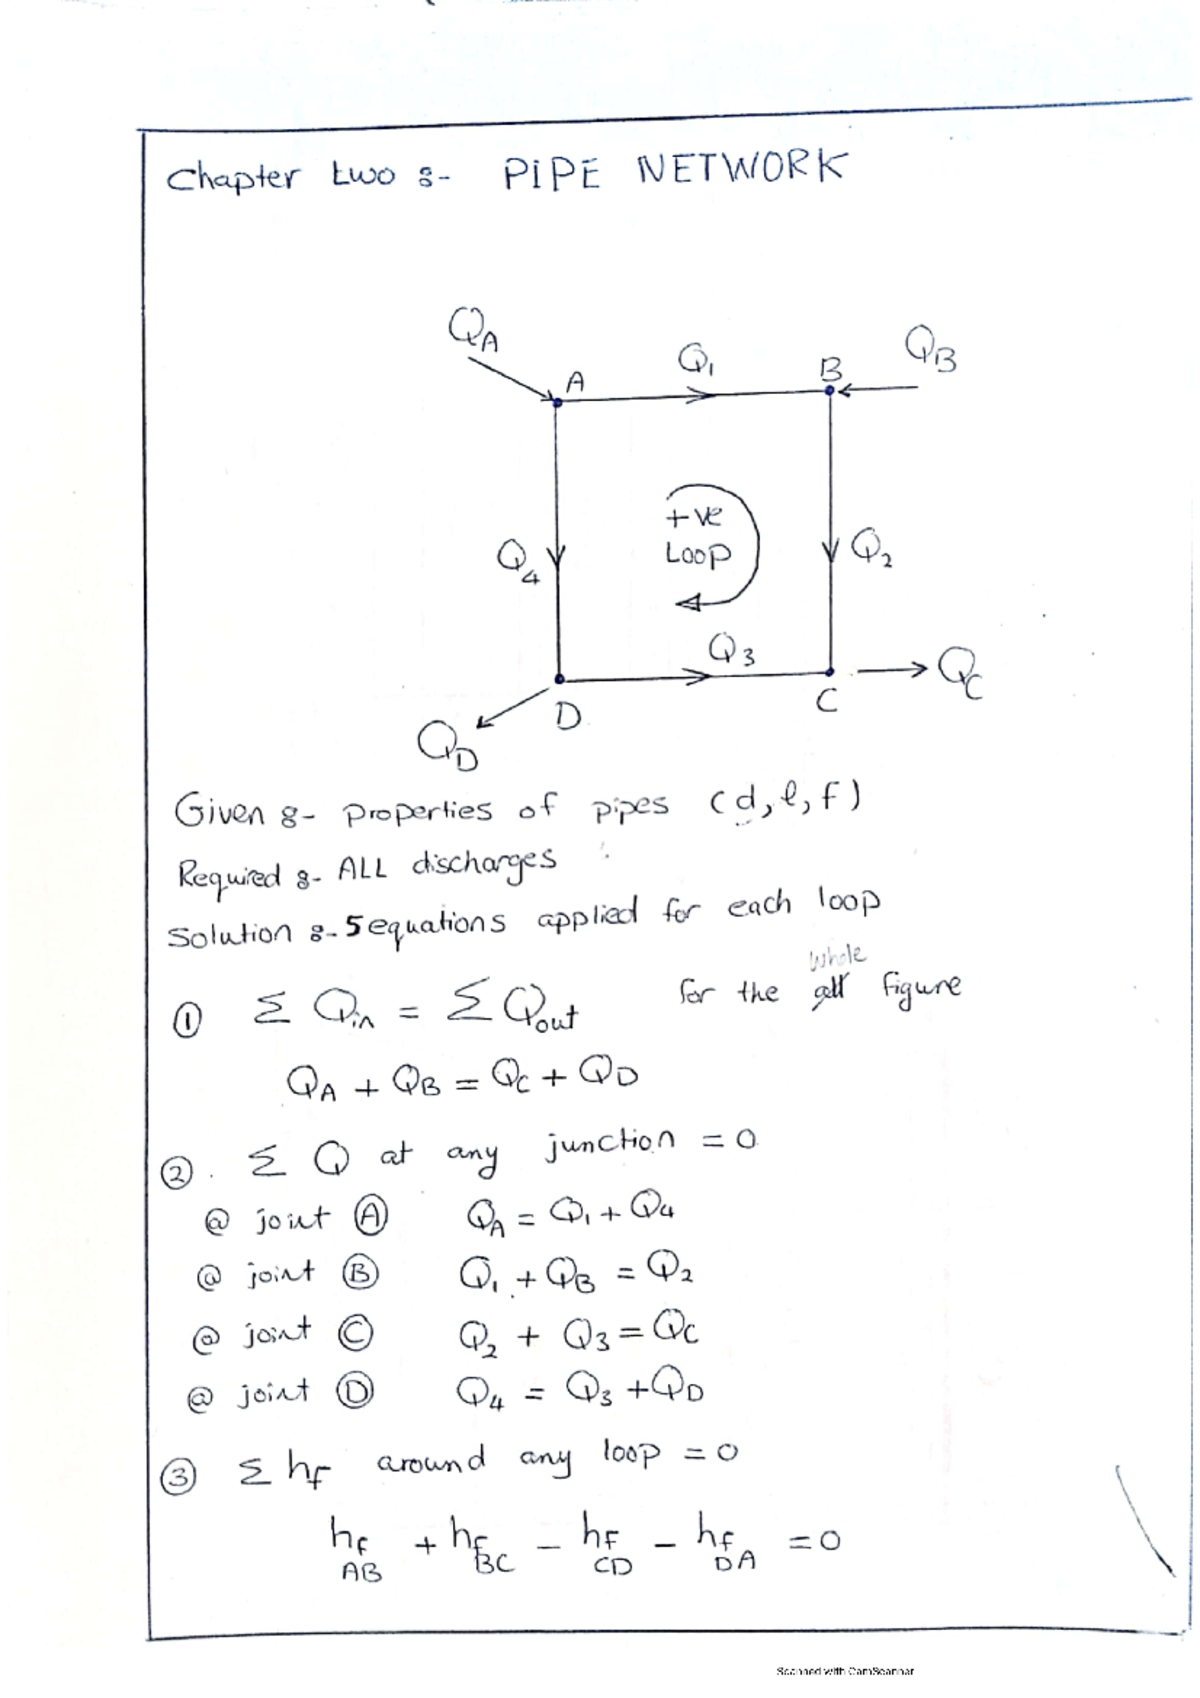 Chapter two :- PIPE NETWORK
QA
A
Q1
B
QB
+ve
Loop
Q4
Q2
Q3
QC
D
C
QD
Given :- Properties of pipes (d, l, f)
Required :- ALL discharges
Solution :- 5 equations applied for each loop
whole
① Σ Qin = Σ Qout for the all figure
QA + QB = QC + QD
②. Σ Q at any junction = 0
@ joint Ⓐ QA = Q1 + Q4
@ joint Ⓑ Q1 + QB = Q2
@ joint Ⓒ Q2 + Q3 = QC
@ joint Ⓓ Q4 = Q3 + QD
③ Σ hf around any loop = 0
hf AB + hf BC - hf CD - hf DA = 0
Scanned with CamScanner